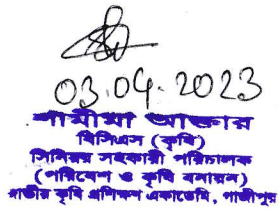 03.04.2023
শামীমা আক্তার
বিসিএস (কৃষি)
সিনিয়র সহকারী পরিচালক
(পরিবেশ ও কৃষি বনায়ন)
জাতীয় কৃষি প্রশিক্ষণ একাডেমি, গাজীপুর